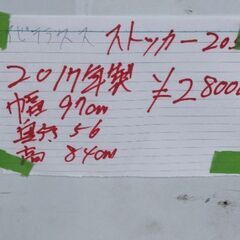 ストッカー20
2017年製
¥2800
幅 97cm
奥行 56
高 84cm